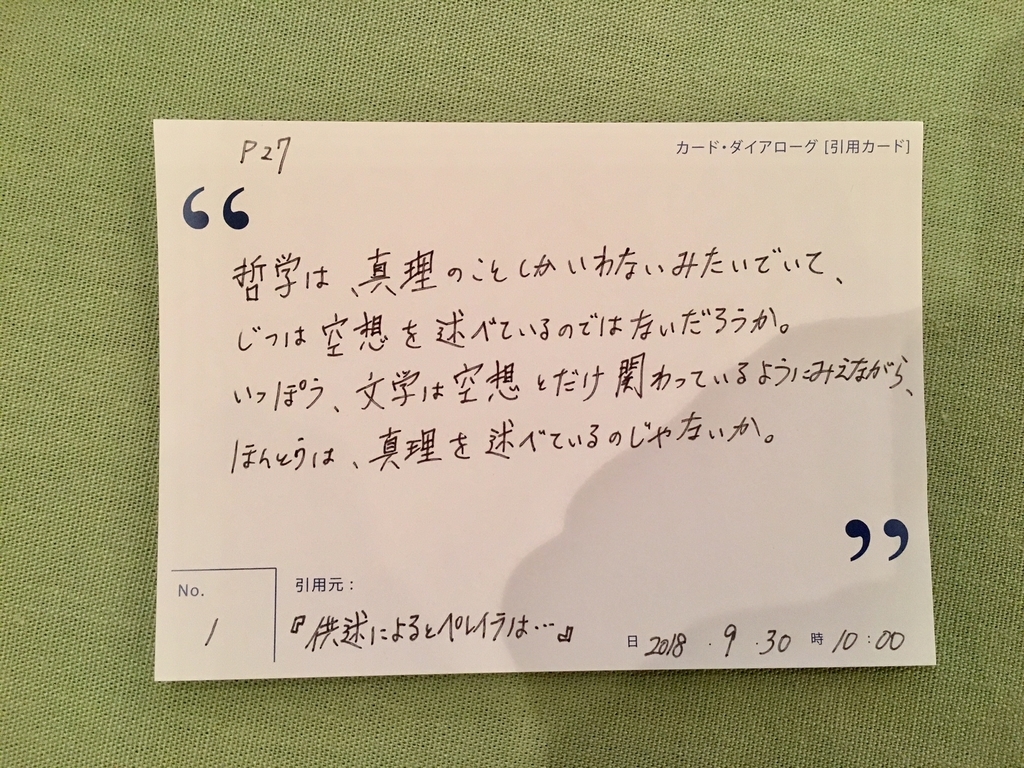 P27
カード・ダイアローグ [引用カード]
“
哲学は、真理のことしかいわないみたいでいて、
じつは空想を述べているのではないだろうか。
いっぽう、文学は空想とだけ関わっているようにみえながら、
ほんとうは、真理を述べているのじゃないか。
”
No.
1
引用元：
『供述によるとペレイラは…』
日 2018 . 9 . 30 時 10 : 00